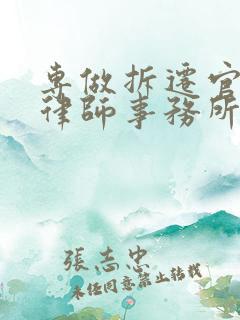 專做拆遷官
律師事務所
張志忠
未任同意禁止轉載